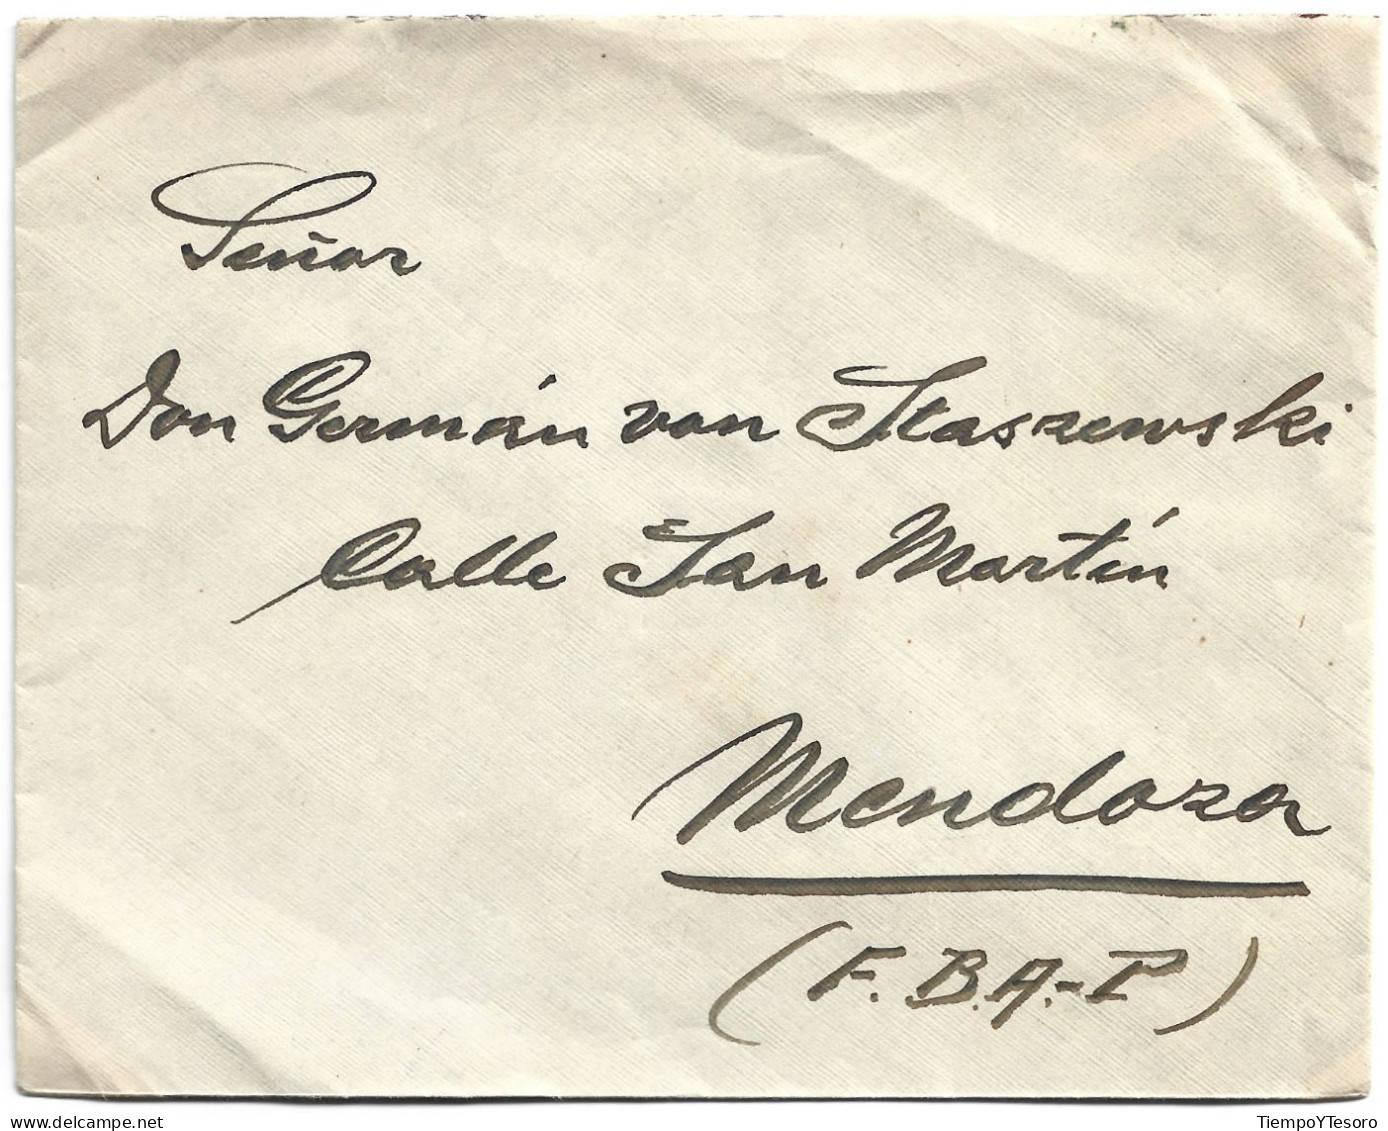 Señor
Don Germán von Staszewski
Calle San Martín
Mendoza
(F.B.A.-P)
www.delcampe.net
TiempoYTesoro